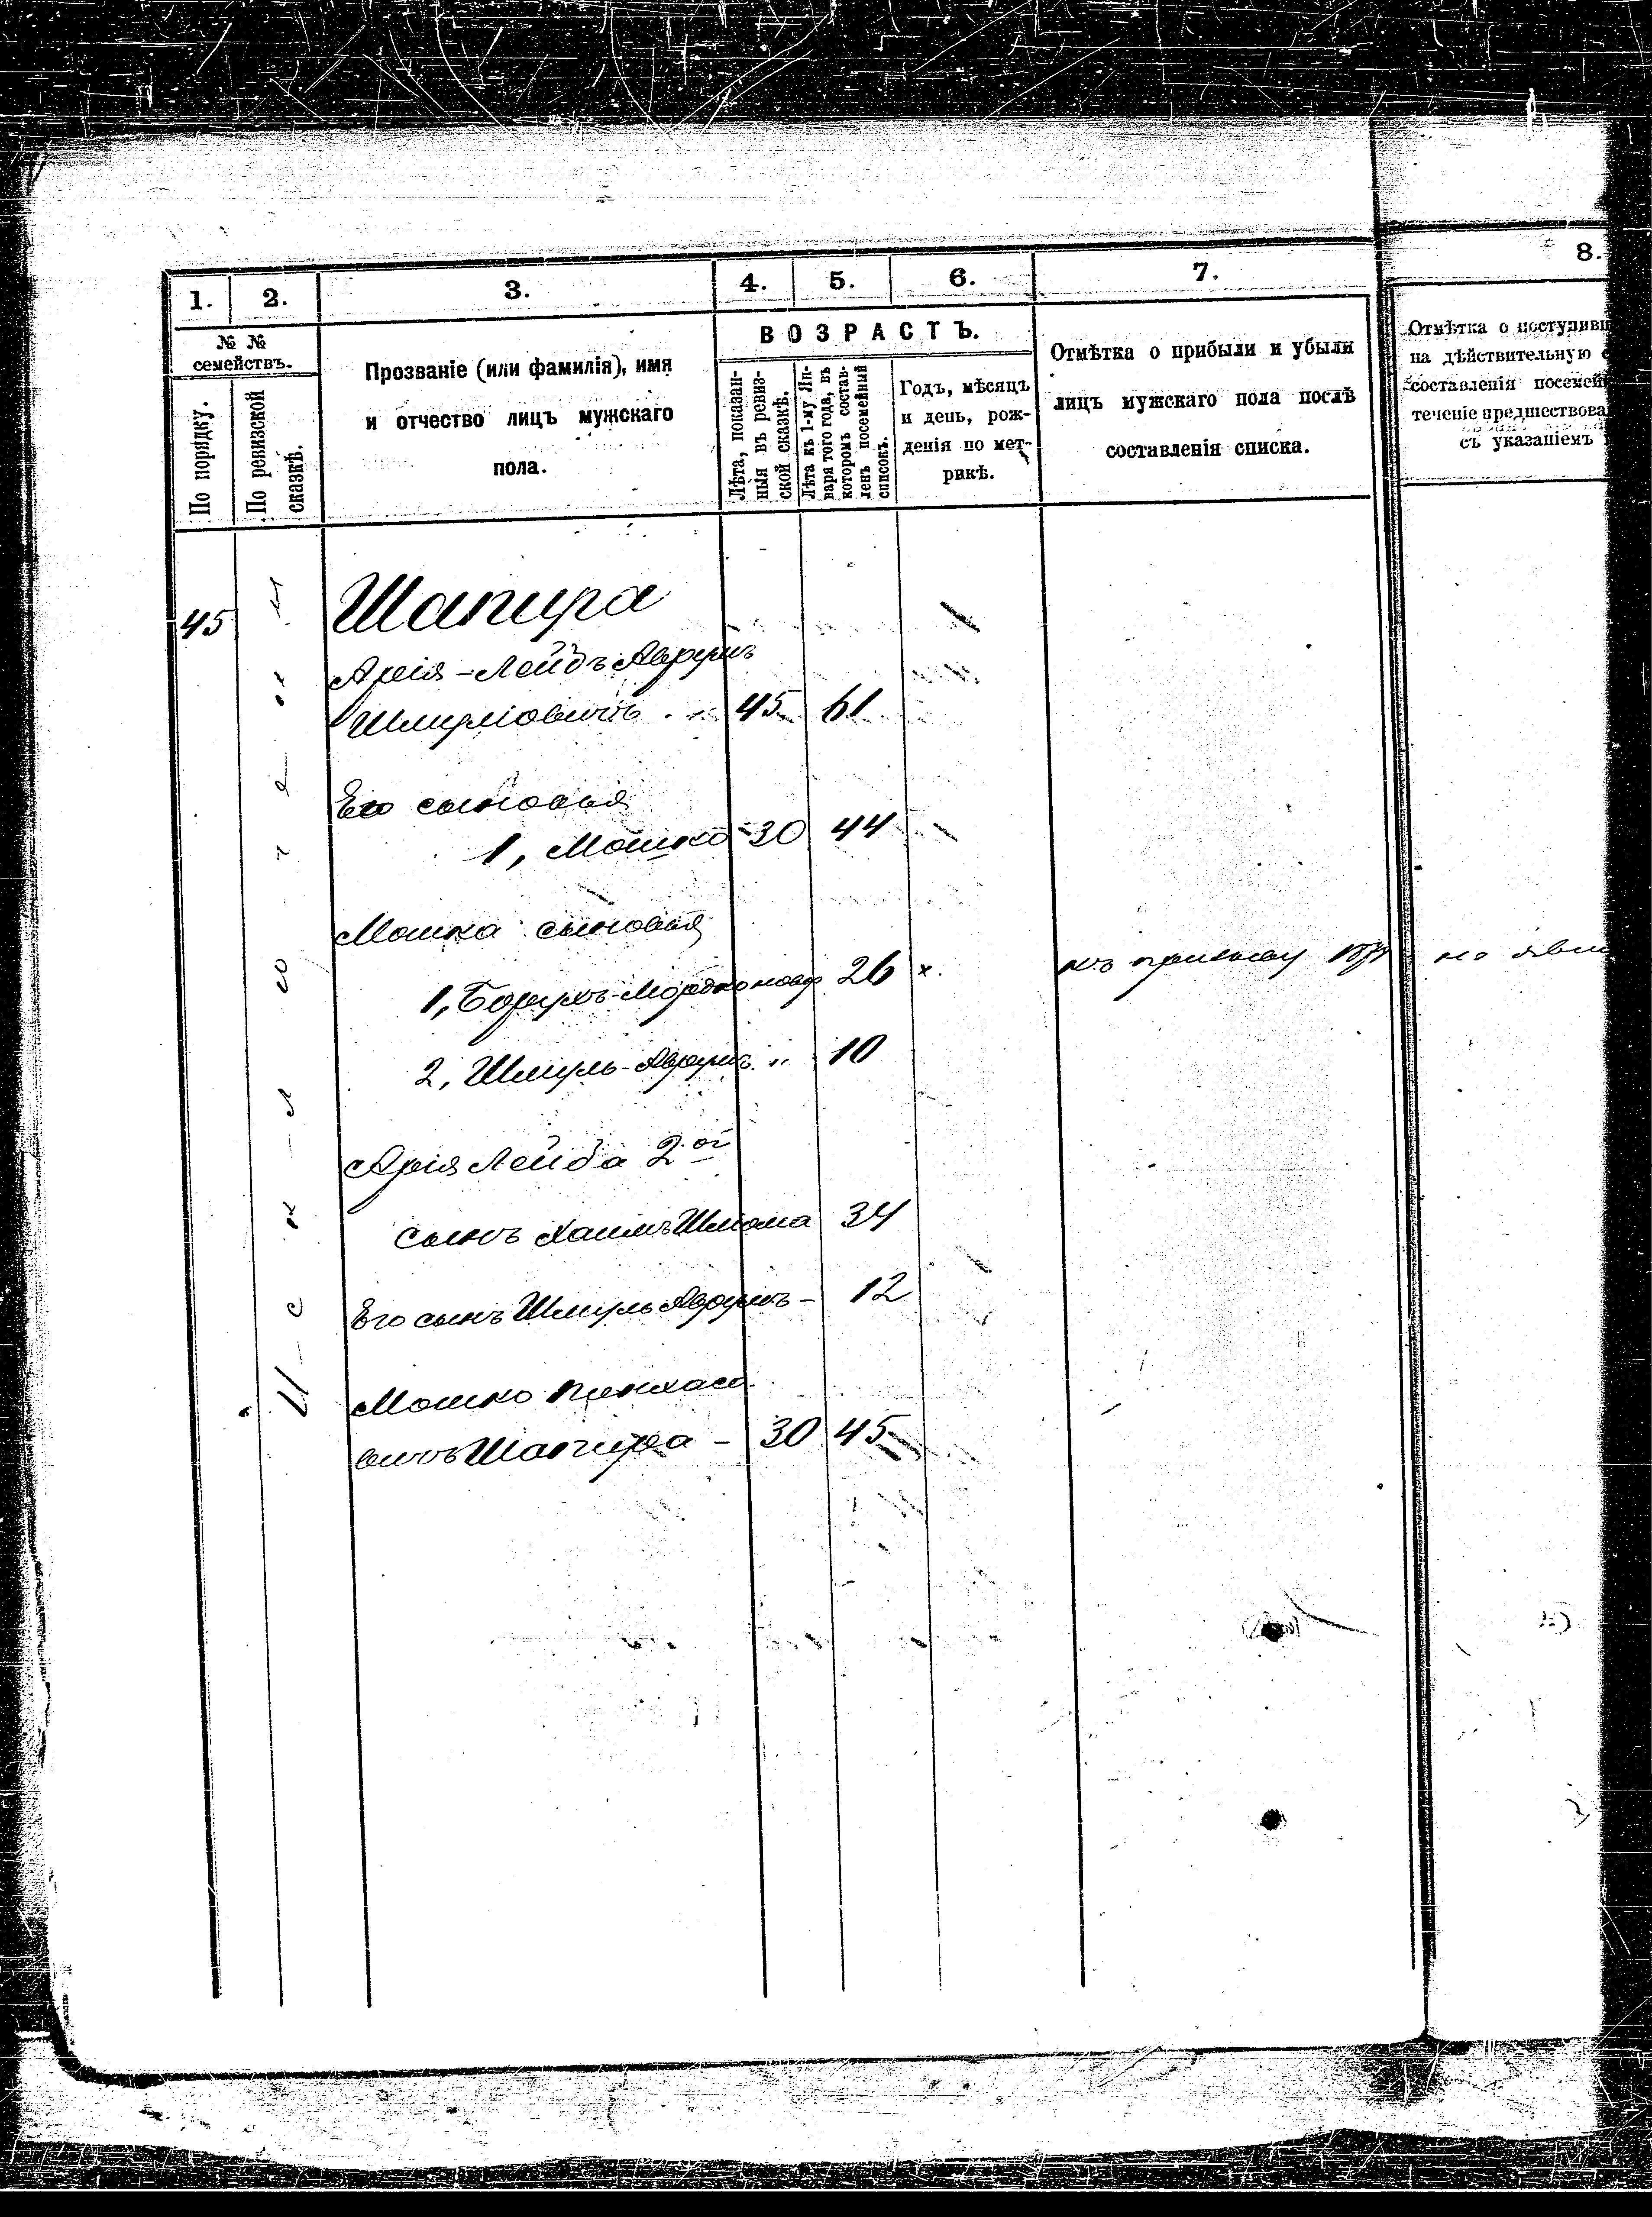 1. 2. 3. 4. 5. 6. 7. 8.
№ №
семействъ.
По порядку.
По ревизской
сказкѣ.
Прозваніе (или фамилія), имя
и отчество лицъ мужскаго
пола.
ВОЗРАСТЪ.
Лѣта, показан-
ныя въ ревиз-
ской сказкѣ.
Лѣта къ 1-му Ян-
варя того года, въ
которомъ состав-
ленъ посемейный
списокъ.
Годъ, мѣсяцъ
и день, рож-
денія по мет-
рикѣ.
Отмѣтка о прибыли и убыли
лицъ мужскаго пола послѣ
составленія списка.
Отмѣтка о поступивш
на дѣйствительную с
составленія посемей
теченіе предшествова
съ указаніемъ
45 Шапира
Арія-Лейбъ Аврумъ
Шмуліовичъ 45 61
Его сыновья
1, Мошко 30 44
Мошка сыновья
1, Борухъ-Мордко новор 26 х. къ призыву не яви
2, Шмуль-Аврумъ " 10
Арія Лейба 2ой
сынъ Хаимъ Шлиома 34
Его сынъ Шмуль Аврумъ - 12
Мошко Пинхасо
вичъ Шапира - 30 45